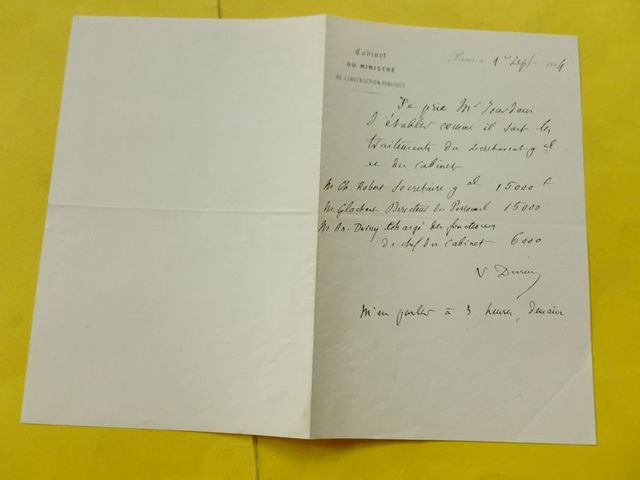 Cabinet
DU MINISTRE
DE L'INSTRUCTION PUBLIQUE
Paris 1er Sept 1864
Je prie Mr Jourdain
d'établir comme il suit les
traitements du secretariat gal
et du cabinet
Mr Ch. Robert Secretaire gal 15000 f
Mr Glachant Directeur du Personnel 15000
Mr An. Duruy chargé des fonctions
de chef du Cabinet 6000
V Duruy
M'en parler à 3 heures, demain